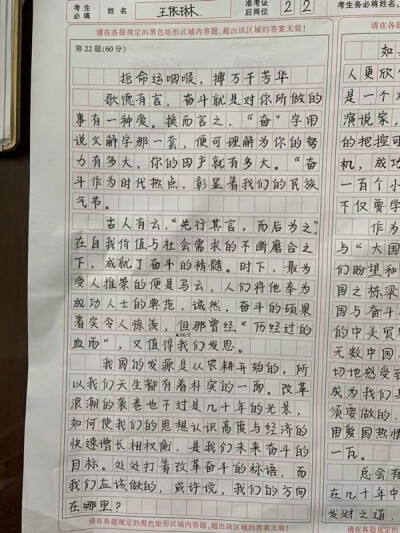 考生必填
姓名
王依琳
准考证后两位
2 2
考生务必将姓名、
请在各题规定的黑色矩形区域内答题,超出该区域的答案无效!
请在各题规
第22题(60分)
扼命运咽喉,搏万千芳华
歌德有言,奋斗就是对你所做的
事有一种爱。换而言之,“奋”字用
说文解字那一套,便可理解为你的努
力有多大,你的田产就有多大。“奋
斗作为时代热点,彰显着我们的民族
气节。
古人有云,“先行其言,而后为之”
在自我价值与社会需求的不断磨合之
下,成就了奋斗的精髓。时下,最为
受人推崇的便是马云,人们将他奉为
成功人士的典范,诚然,奋斗的硕果
着实令人惊羡,但那曾经“历经过的
血雨”,又值得我们发思。
我国的发源是从农耕开始的,所
以我们天生都有着朴实的一面。改革
浪潮的席卷也不过是几十年的光景,
如何使我们的思想认识高度与经济的
快速增长相权衡,是我们未来奋斗的
目标。处处打着改革奋斗的标语,而
我们应该做的,或许说,我们的方向
在哪里?
请在各题规定的黑色矩形区域内答题,超出该区域的答案无效!
请在各题规
如
人更欣
是一个
演说家,
的把控可
机,成功
一百个小
不仅要学
作为
与“大国
们盼望和
国之栋梁
国与奋斗
的中美贸
无数中国
切地感受
成为我们
须要做的
用爱国热情
一瓦。
总会有
在几十年中
发财之道